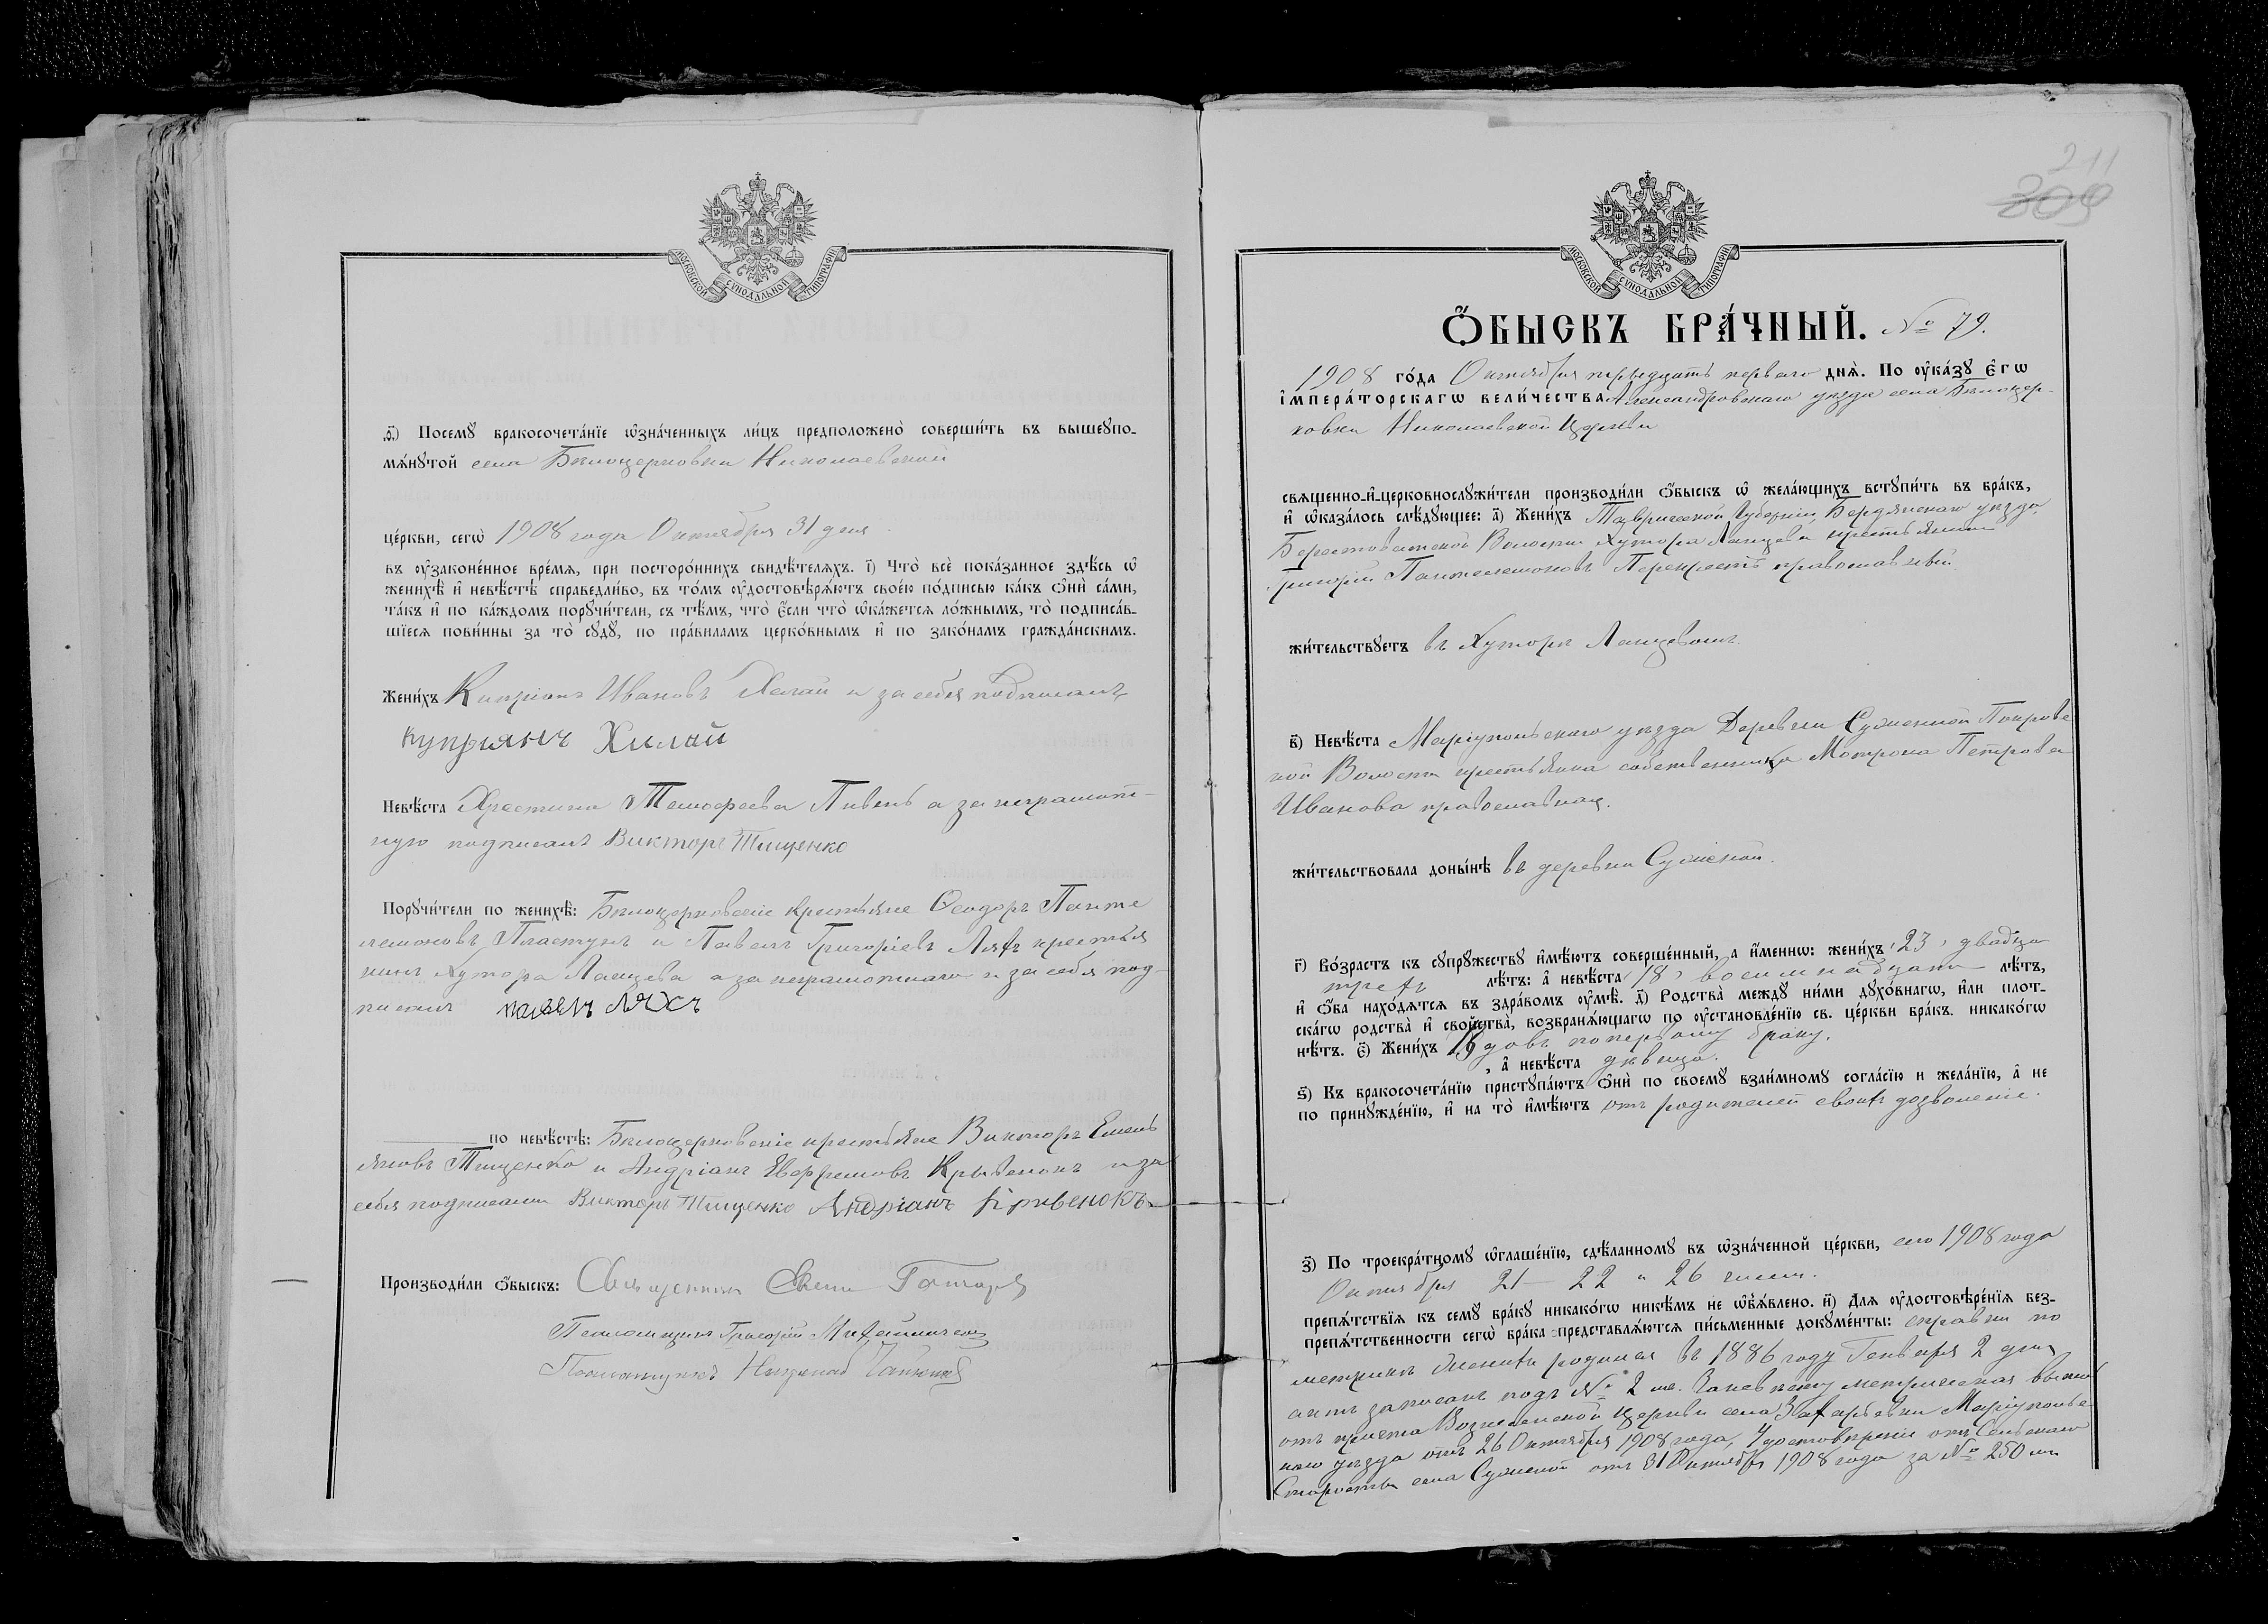 МОСКОВСКОЙ СѴНОДАЛЬНОЙ ТИПОГРАФІИ
ѳ҃) Посемꙋ̀ бракосочета́нїе ѡ҆зна́ченныхъ ли́цъ предположено̀ соверши́ть въ вышеꙋпо-
мѧ́нꙋтой села Бѣлоцерковки Николаевской
це́ркви, сегѡ̀ 1908 года Октября 31 дня
въ ᲂу҆зако́ненное вре́мѧ, при посторо́ннихъ свидѣ́телѧхъ. і҃) Что̀ всѐ пока́занное здѣ́сь ѡ҆
женихѣ̀ и҆ невѣ́стѣ справедли́во, въ то́мъ ᲂу҆достовѣрѧ́ютъ свое́ю по́дписью ка́къ ѻ҆нѝ са́ми,
та́къ и҆ по ка́ждомъ порꙋчи́тели, съ тѣ́мъ, что̀ є҆́сли что̀ ѡ҆ка́жетсѧ ло́жнымъ, то̀ подписа́в-
шїесѧ пови́нны за то̀ сꙋдꙋ̀, по пра́виламъ церко́внымъ и҆ по зако́намъ гражда́нскимъ.
Жени́хъ Кипріанъ Ивановъ Хилай и за себя подписалъ
Куприянъ Хилай
Невѣ́ста Христина Тимофеева Пивень а за неграмот-
ную подписалъ Викторъ Тищенко
Порꙋчи́тели по женихѣ̀: Бѣлоцерковскіе крестьяне Ѳеодоръ Панте
лемоновъ Пластунъ и Павелъ Григоріевъ Ляхъ крестья
нинъ Хутора Ланцева а за неграмотнаго и за себя под-
писалъ павелъ Ляхъ
по невѣ́стѣ: Бѣлоцерковскіе крестьяне Викторъ Емель
яновъ Тищенко и Андріанъ Евфремовъ Кривенокъ и за
себя подписали Викторъ Тищенко Андріанъ Кривенокъ
Производи́ли ѻ҆́быскъ: Священникъ
Псаломщикъ Григорій
Псаломщикъ
211
309
МОСКОВСКОЙ СѴНОДАЛЬНОЙ ТИПОГРАФІИ
Ѻ҆́БЫСКЪ БРА́ЧНЫЙ. № 79.
1908 го́да Октября тридцать перваго днѧ̀. По ᲂу҆ка́зꙋ Є҆гѡ̀
і҆мпера́торскагѡ вели́чества Александровскаго уѣзда села Бѣлоцер-
ковки Николаевской Церкви
свѧщенно-и҆-церковнослꙋжи́тели производи́ли ѻ҆́быскъ ѡ҆ жела́ющихъ встꙋпи́ть въ бра́къ,
и҆ ѡ҆каза́лось слѣ́дꙋющее: а҃) Жени́хъ Таврической Губерніи, Бердянскаго уѣзда,
Берестоватской Волости Хутора Ланцева крестьянинъ
Григорій Пантелемоновъ Перехрестъ православный
жи́тельствꙋетъ въ Хуторѣ Ланцевомъ.
в҃) Невѣ́ста Маріупольскаго уѣзда Деревни Суженой Покровс
кой Волости крестьянка собственница Мотрона Петрова
Иванова православная.
жи́тельствовала доны́нѣ въ деревни Суженой.
г҃) Во́зрастъ къ сꙋпрꙋ́жествꙋ и҆мѣ́ютъ соверше́нный, а и҆́меннѡ: жени́хъ „23„ двадца
трехъ лѣ́тъ: а҆ невѣ́ста „18„ восемнадцати лѣ́тъ,
и҆ ѻ҆́ба нахо́дѧтсѧ въ здра́вомъ ᲂу҆мѣ̀. д҃) Родства̀ междꙋ̀ ни́ми дꙋхо́внагѡ, и҆́ли плот-
ска́гѡ родства̀ и҆ сво́йства̀, возбранѧ́ющагѡ по ᲂу҆становле́нїю св. це́ркви бра́къ никако́гѡ
нѣ́тъ. є҃) Жени́хъ Вдовъ по первому браку.
, а҆ невѣ́ста дѣвица.
ѕ҃) Къ бракосочета́нїю пристꙋпа́ютъ ѻ҆нѝ по своемꙋ̀ взаи́мномꙋ согла́сїю и жела́нїю, а҆ не
по принꙋжде́нїю, и҆ на то̀ и҆мѣ́ютъ отъ родителей своихъ дозволеніе.
з҃) По троекра́тномꙋ ѡ҆глаше́нїю, сдѣ́ланномꙋ въ ѡ҆зна́ченной це́ркви, сего 1908 года
Октября 21 22 и 26 чисел.
препѧ́тствїѧ къ семꙋ̀ бра́кꙋ никако́гѡ никѣ́мъ не ѡ҆б̾ѧ́влено. и҃) Длѧ ᲂу҆достовѣре́нїѧ без-
препѧ́тственности сегѡ̀ бра́ка представлѧ́ютсѧ пи́сьменные докꙋме́нты: справки по
метрикѣ Женихъ родился въ 1886 году Генваря 2 дня
актъ записанъ подъ № 2 метрическая выпись
отъ причта Вознесенской Церкви села Захарьевки Маріупольс
каго уѣзда отъ 26 Октября 1908 года, Удостовѣреніе отъ Сельскаго
Старосты села Суженой отъ 31 Октября 1908 года за № 250